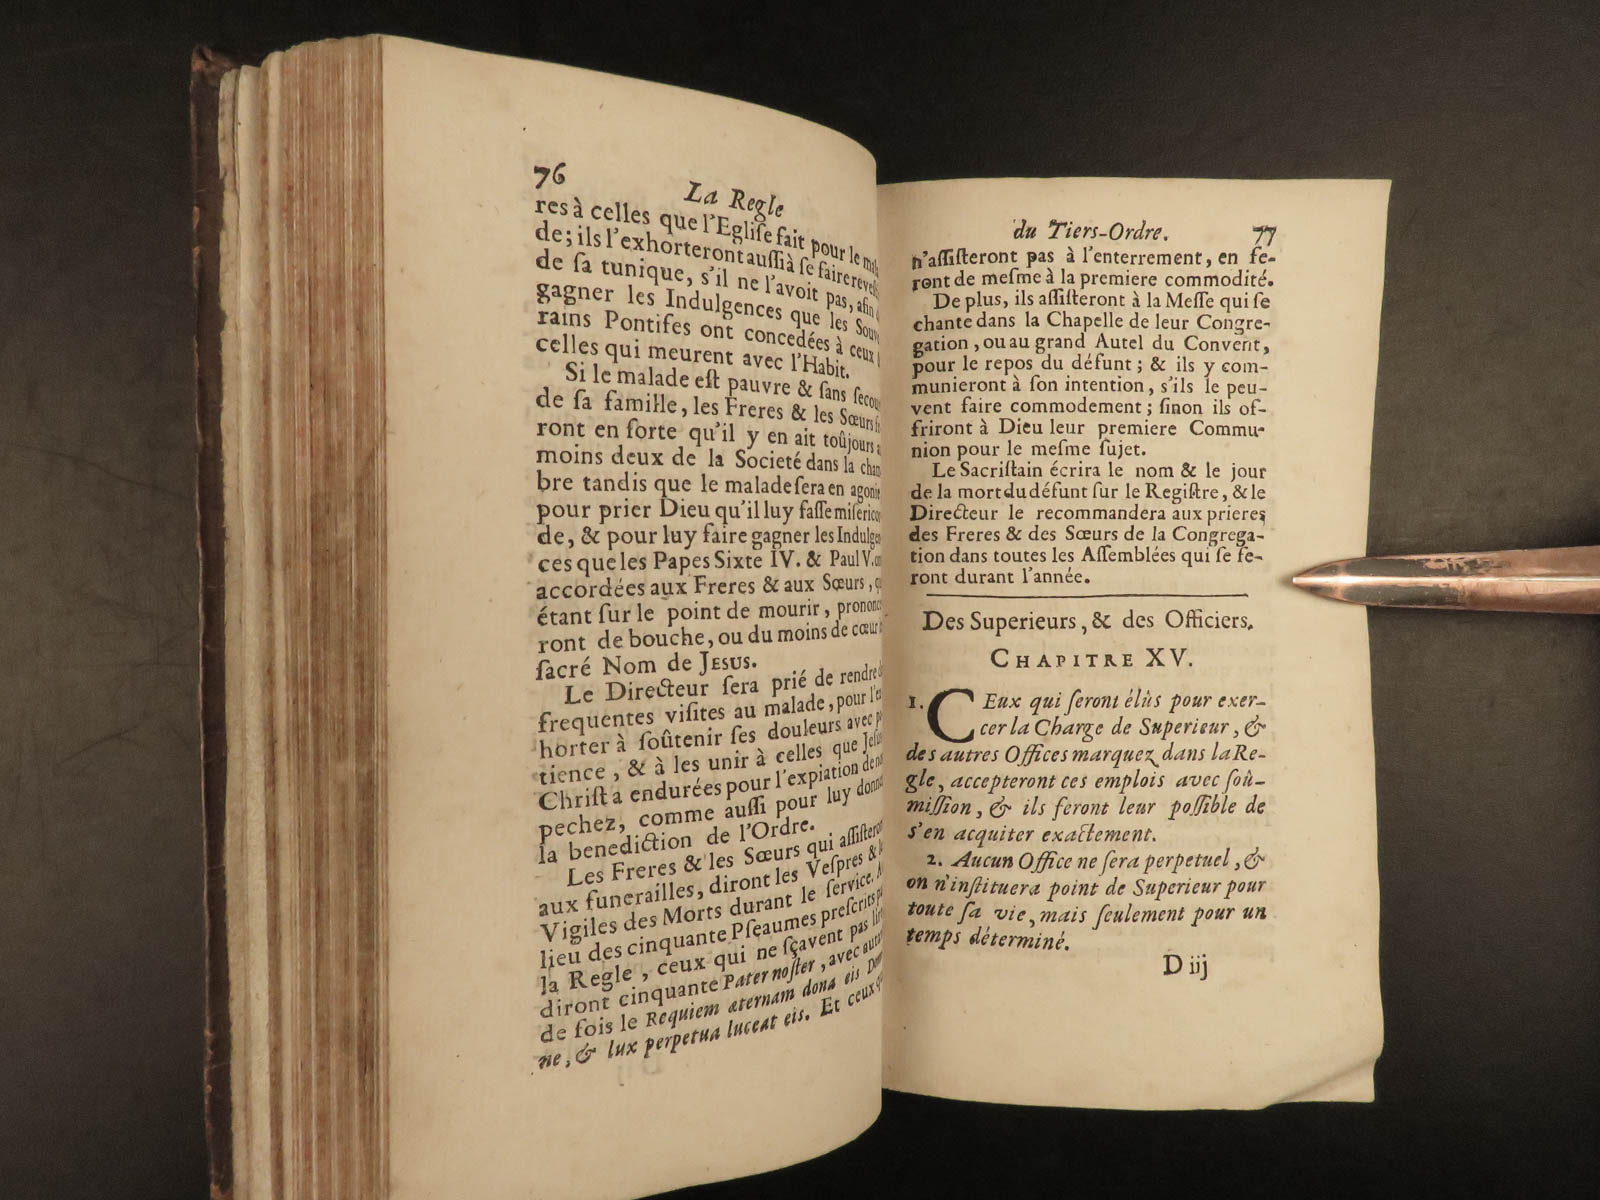 76
La Regle
res à celles que l'Egliſe fait pour le
de; ils l'exhorteront auſſi à ſe faire
de ſa tunique, s'il ne l'avoit pas, afin
gagner les Indulgences que les
rains Pontifes ont concedées à ceux
celles qui meurent avec l'Habit.
Si le malade eſt pauvre & ſans
de ſa famille, les Freres & les Sœurs
ront en ſorte qu'il y en ait toûjours
moins deux de la Societé dans la
bre tandis que le malade ſera en
pour prier Dieu qu'il luy faſſe
de, & pour luy faire gagner les
ces que les Papes Sixte IV. & Paul V.
accordées aux Freres & aux Sœurs,
étant ſur le point de mourir,
ront de bouche, ou du moins de cœur
ſacré Nom de JESUS.
Le Directeur ſera prié de rendre
frequentes viſites au malade, pour
horter à ſoûtenir ſes douleurs avec
tience, & à les unir à celles que
Chriſt a endurées pour l'expiation de
pechez, comme auſſi pour luy
la benediction de l'Ordre.
Les Freres & les Sœurs qui
aux funerailles, diront les Veſpres &
Vigiles des Morts durant le ſervice.
lieu des cinquante Pſeaumes preſcrits
la Regle, ceux qui ne ſçavent pas
diront cinquante Pater noſter, avec
de fois le Requiem æternam dona eis
ne, & lux perpetua luceat eis. Et ceux
du Tiers-Ordre.
77
n'aſſiſteront pas à l'enterrement, en fe-
ront de meſme à la premiere commodité.
De plus, ils aſſiſteront à la Meſſe qui ſe
chante dans la Chapelle de leur Congre-
gation, ou au grand Autel du Convent,
pour le repos du défunt; & ils y com-
munieront à ſon intention, s'ils le peu-
vent faire commodement; ſinon ils of-
friront à Dieu leur premiere Commu-
nion pour le meſme ſujet.
Le Sacriſtain écrira le nom & le jour
de la mort du défunt ſur le Regiſtre, & le
Directeur le recommandera aux prieres
des Freres & des Sœurs de la Congrega-
tion dans toutes les Aſſemblées qui ſe fe-
ront durant l'année.
Des Superieurs, & des Officiers.
CHAPITRE XV.
1. CEux qui ſeront élûs pour exer-
cer la Charge de Superieur, &
des autres Offices marquez dans la Re-
gle, accepteront ces emplois avec ſoû-
miſſion, & ils feront leur poſſible de
s'en acquiter exactement.
2. Aucun Office ne ſera perpetuel, &
on n'inſtituera point de Superieur pour
toute ſa vie, mais ſeulement pour un
temps déterminé.
D iij